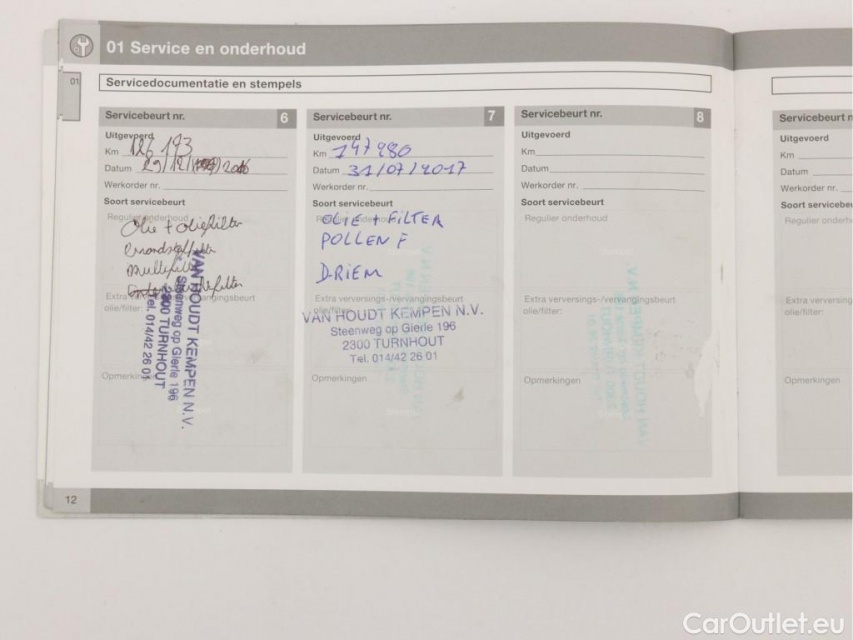 01 Service en onderhoud
01
Servicedocumentatie en stempels
Servicebeurt nr. 6
Uitgevoerd
Km 126 193
Datum 29/12/ 2016
Werkorder nr.
Soort servicebeurt
Regulier onderhoud
Olie + oliefilter
Extra verversings-/vervangingsbeurt
olie/filter:
VAN HOUDT KEMPEN N.V.
Steenweg op Gierle 196
2300 TURNHOUT
Tel. 014/42 26 01
Opmerkingen
Servicebeurt nr. 7
Uitgevoerd
Km 147980
Datum 31/07/2017
Werkorder nr.
Soort servicebeurt
Regulier onderhoud
OLIE + FILTER
POLLEN F
D-RIEM
Extra verversings-/vervangingsbeurt
olie/filter:
VAN HOUDT KEMPEN N.V.
Steenweg op Gierle 196
2300 TURNHOUT
Tel. 014/42 26 01
Opmerkingen
Servicebeurt nr. 8
Uitgevoerd
Km
Datum
Werkorder nr.
Soort servicebeurt
Regulier onderhoud
Extra verversings-/vervangingsbeurt
olie/filter:
Opmerkingen
Servicebeurt n
Uitgevoerd
Km
Datum
Werkorder nr.
Soort servicebe
Regulier onderho
Extra verversings
olie/filter:
Opmerkingen
12
CarOutlet.eu